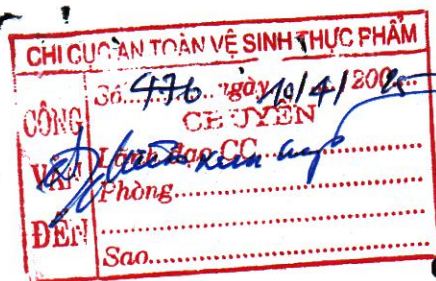 CHI CỤC AN TOÀN VỆ SINH THỰC PHẨM
CÔNG VĂN ĐẾN
Số 476 ngày 10/4/200
CHUYỂN
Lãnh đạo CC
Phòng
Sao